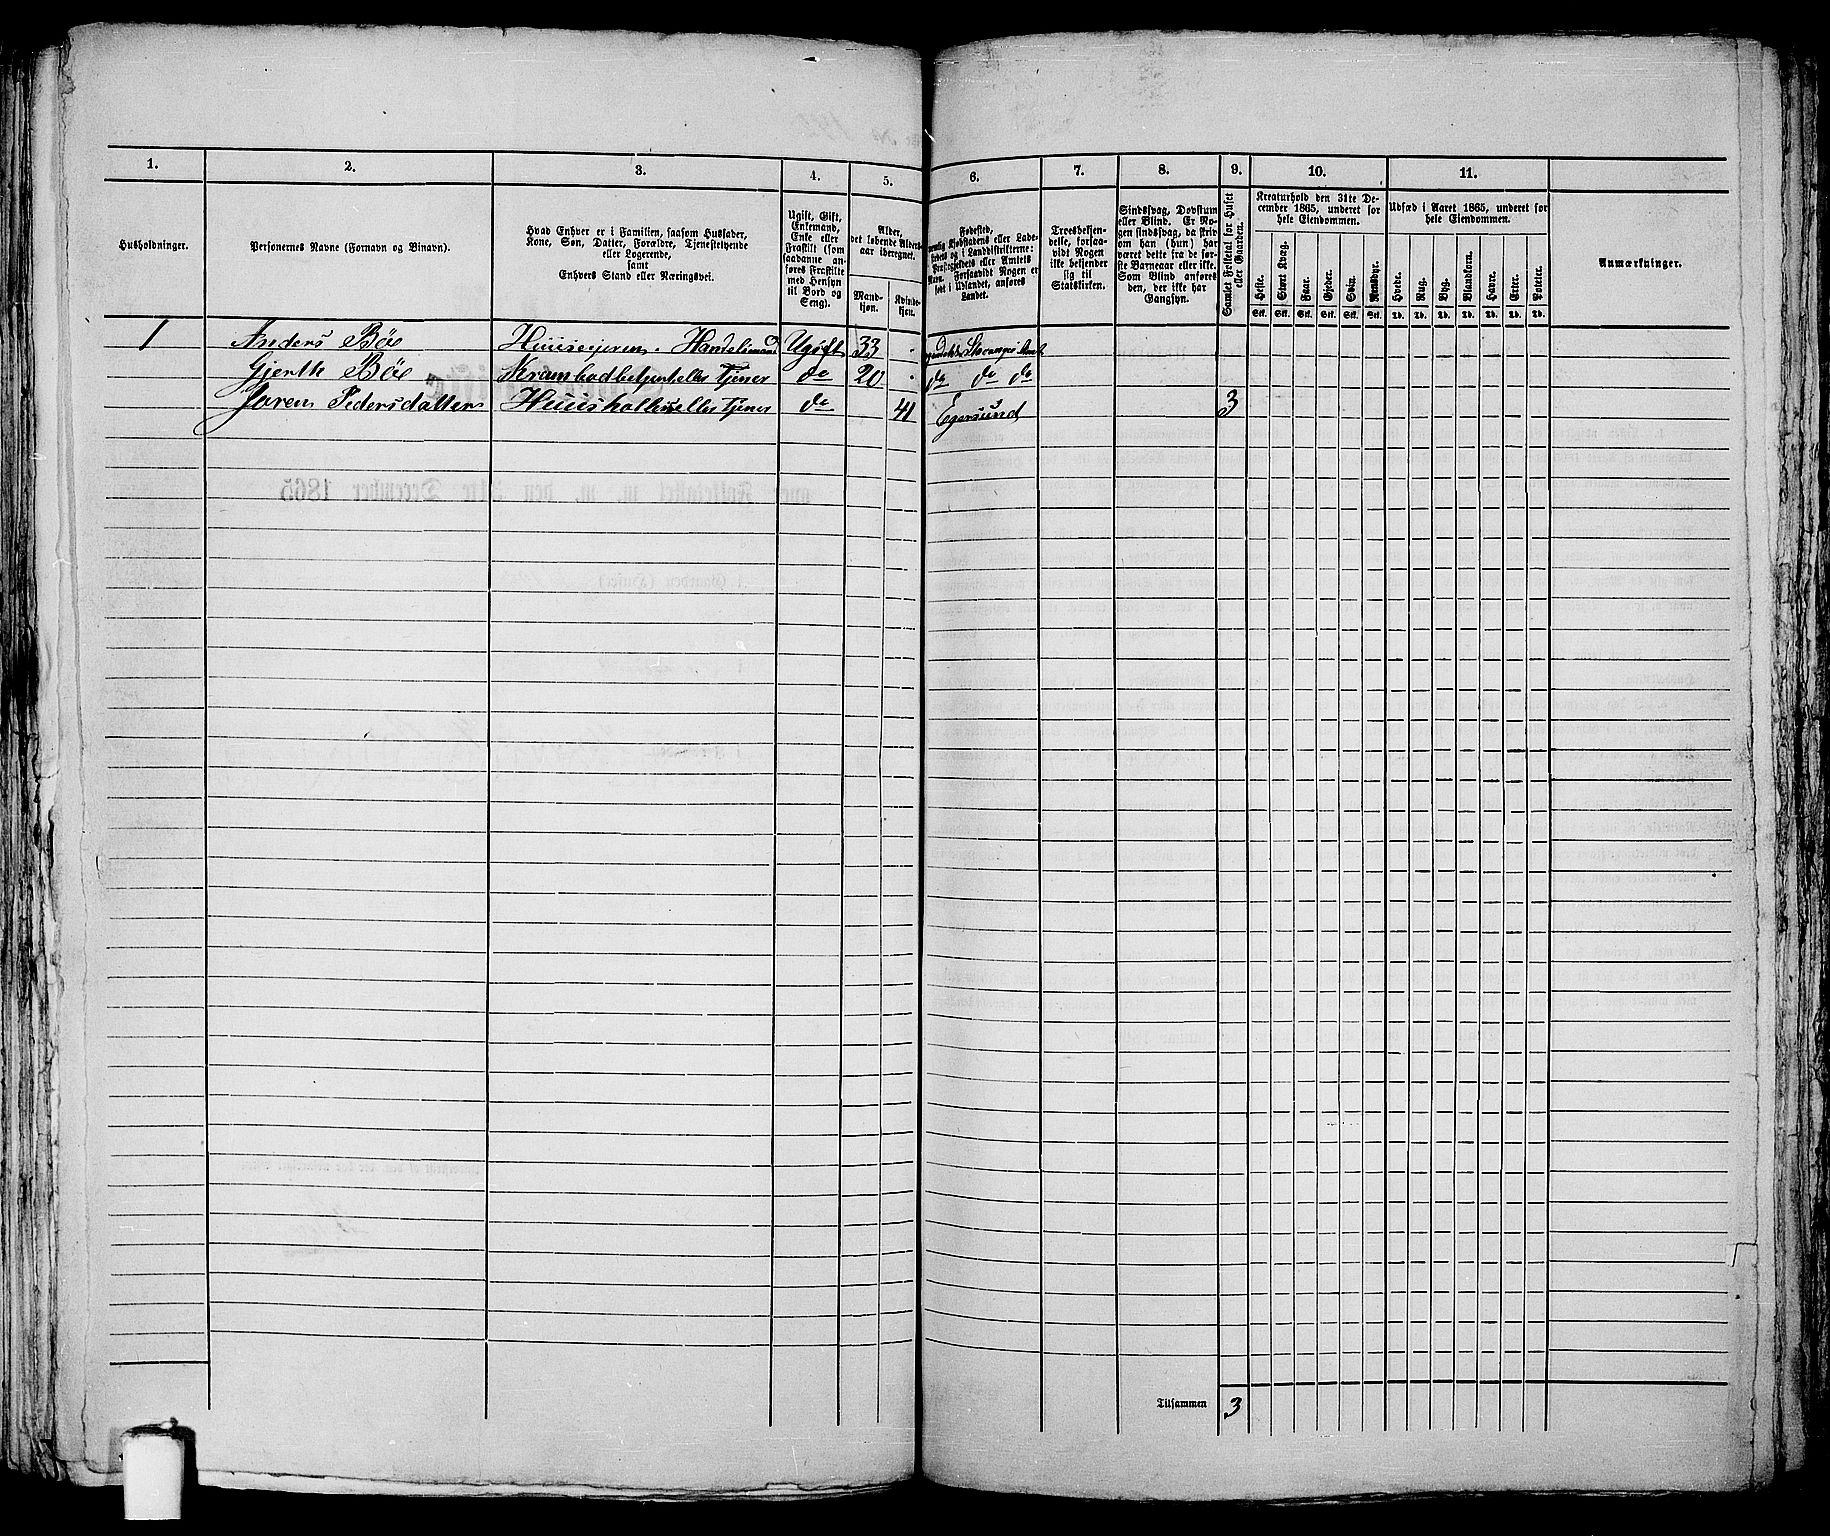 1. 2. 3. 4. 5. 6. 7. 8. 9. 10. 11.
Husholdninger.
Personernes Navne (Fornavn og Binavn).
Hvad Enhver er i Familien, saasom Husfader,
Kone, Søn, Datter, Forældre, Tjenestetyende
eller Logerende,
samt
Enhvers Stand eller Næringsvei.
Ugift, Gift,
Enkemand,
Enke eller
Fraskilt (som
saadanne an-
føres Fraskilte
med Hensyn
til Bord og
Seng).
Alder,
det løbende Alders-
aar iberegnet.
Mand-
kjøn.
Kvinde-
kjøn.
Fødested,
Kjøbstadens eller Lade-
stedets og i Landdistrikterne:
Præstegjeldets eller Amtets
Navn. Forsaavidt Nogen er
født i Udlandet, anføres
Landet.
Troesbekjen-
delse, forsaa-
vidt Nogen
ikke bekjender
sig til
Statskirken.
Sindssvag, Døvstum
eller Blind. Er No-
gen sindssvag, da skriv
om han (hun) har
været dette fra de før-
ste Barneaar eller ikke.
Som Blind anføres
den, der ikke har
Gangsyn.
Samlet Folketal for Huset
eller Gaarden.
Kreaturhold den 31te De-
cember 1865, underet for
hele Eiendommen.
Heste. Stort Kvæg. Faar. Gjeder. Svin. Rensdyr.
Stk. Stk. Stk. Stk. Stk. Stk.
Udsæd i Aaret 1865, underet for
hele Eiendommen.
Hvede. Rug. Byg. Blandkorn. Havre. Erter. Poteter.
Td. Td. Td. Td. Td. Td. Td.
Anmærkninger.
1 Anders Böe Huuseieren. Handelsmand Ugift 33 Stavanger Amt
Gjerth Böe Krambodbetjent eller Tjener do 20 do do do
Joren Pedersdatter Huusholderske eller Tjener do 41 Egersund 3
Tilsammen 3